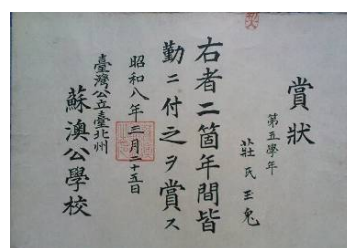 賞狀
第五學年
莊氏玉兔
右者二箇年間皆
勤ニ付之ヲ賞ス
昭和八年三月二十五日
臺灣公立臺北州
蘇澳公學校